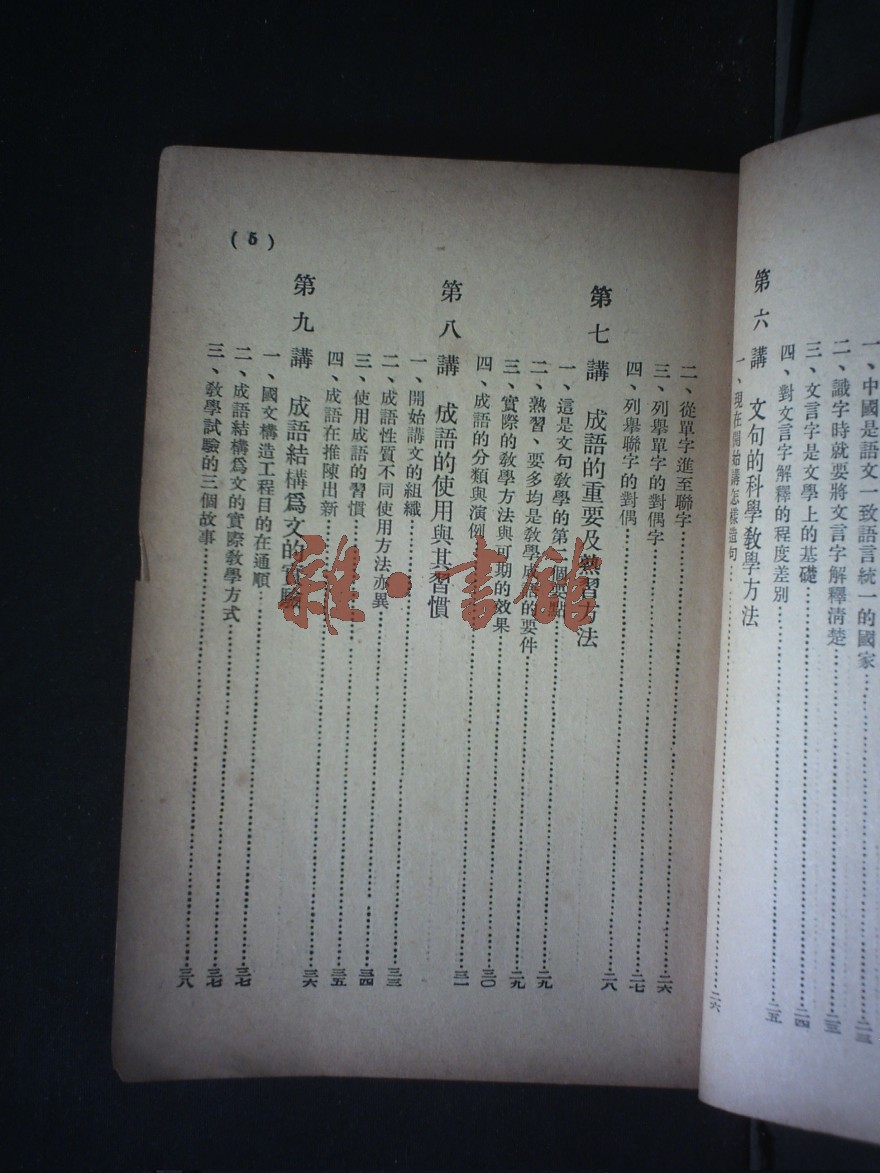 一、中國是語文一致語言統一的國家……二三
二、識字時就要將文言字解釋清楚……二三
三、文言字是文學上的基礎……二四
四、對文言字解釋的程度差別……二五
第六講 文句的科學教學方法
一、現在開始講怎樣造句……二六
二、從單字進至聯字……二六
三、列舉單字的對偶字……二七
四、列舉聯字的對偶……二八
第七講 成語的重要及熟習方法
一、這是文句教學的第二個點……二九
二、熟習、要多均是教學成語的要件……二九
三、實際的教學方法與可期的效果……三〇
四、成語的分類與演例……三一
第八講 成語的使用與其習慣
一、開始講文的組織……三三
二、成語性質不同使用方法亦異……三四
三、使用成語的習慣……三五
四、成語在推陳出新……三六
第九講 成語結構爲文的實驗
一、國文構造工程目的在通順……三七
二、成語結構爲文的實際教學方式……三七
三、教學試驗的三個故事……三八
(5)
雜·書館